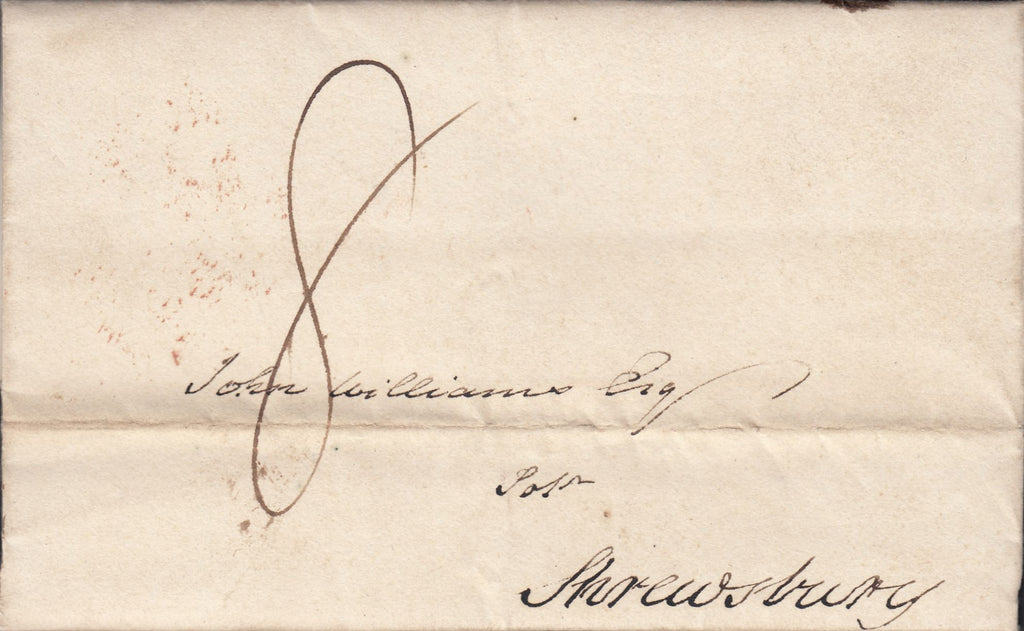 8
John Williams Esq
Solr
Shrewsbury